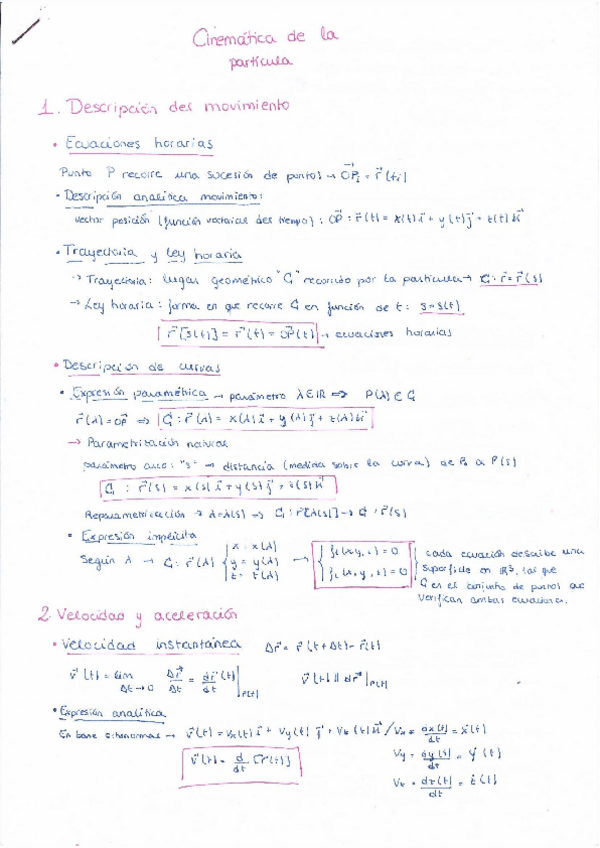 Cinemática de la
partícula
1. Descripción del movimiento
• Ecuaciones horarias
Punto P recorre una sucesión de puntos → OPᵢ = r⃗(tᵢ)
- Descripción analítica movimiento:
vector posición (función vectorial del tiempo): OP⃗: r⃗(t) = x(t)i⃗ + y(t)j⃗ + z(t)k⃗
• Trayectoria y ley horaria
→ Trayectoria: lugar geométrico "C" recorrido por la partícula → C: r⃗ = r⃗(s)
→ Ley horaria: forma en que recorre C en función de t: s = s(t)
r⃗[s(t)] = r⃗(t) = OP⃗(t) → ecuaciones horarias
• Descripción de curvas
• Expresión paramétrica → parámetro λ∈ℝ ⇒ P(λ) ∈ C
r⃗(λ) = OP⃗ ⇒ C: r⃗(λ) = x(λ)i⃗ + y(λ)j⃗ + z(λ)k⃗
→ Parametrización natural
parámetro arco: "s" → distancia (medida sobre la curva) de P₀ a P(s)
C : r⃗(s) = x(s)i⃗ + y(s)j⃗ + z(s)k⃗
Reparametrización → λ=λ(s) ⇒ C: r⃗[λ(s)] → C: r⃗(s)
• Expresión implícita
Según λ → C: r⃗(λ) { x = x(λ) y = y(λ) z = z(λ) → { f₁(x,y,z) = 0 f₂(x,y,z) = 0 } cada ecuación describe una
superficie en ℝ³, tal que
C es el conjunto de puntos que
verifican ambas ecuaciones.
2. Velocidad y aceleración
• Velocidad instantánea Δr⃗ = r⃗(t+Δt) - r⃗(t)
v⃗(t) = lim Δt→0 Δr⃗/Δt = dr⃗(t)/dt |P(t) v⃗(t) || dr⃗|P(t)
• Expresión analítica
En base ortonormal → v⃗(t) = Vx(t)i⃗ + Vy(t)j⃗ + Vz(t)k⃗ / Vx = dx(t)/dt = ẋ(t)
v⃗(t) = d/dt [r⃗(t)]
Vy = dy(t)/dt = ẏ(t)
Vz = dz(t)/dt = ż(t)